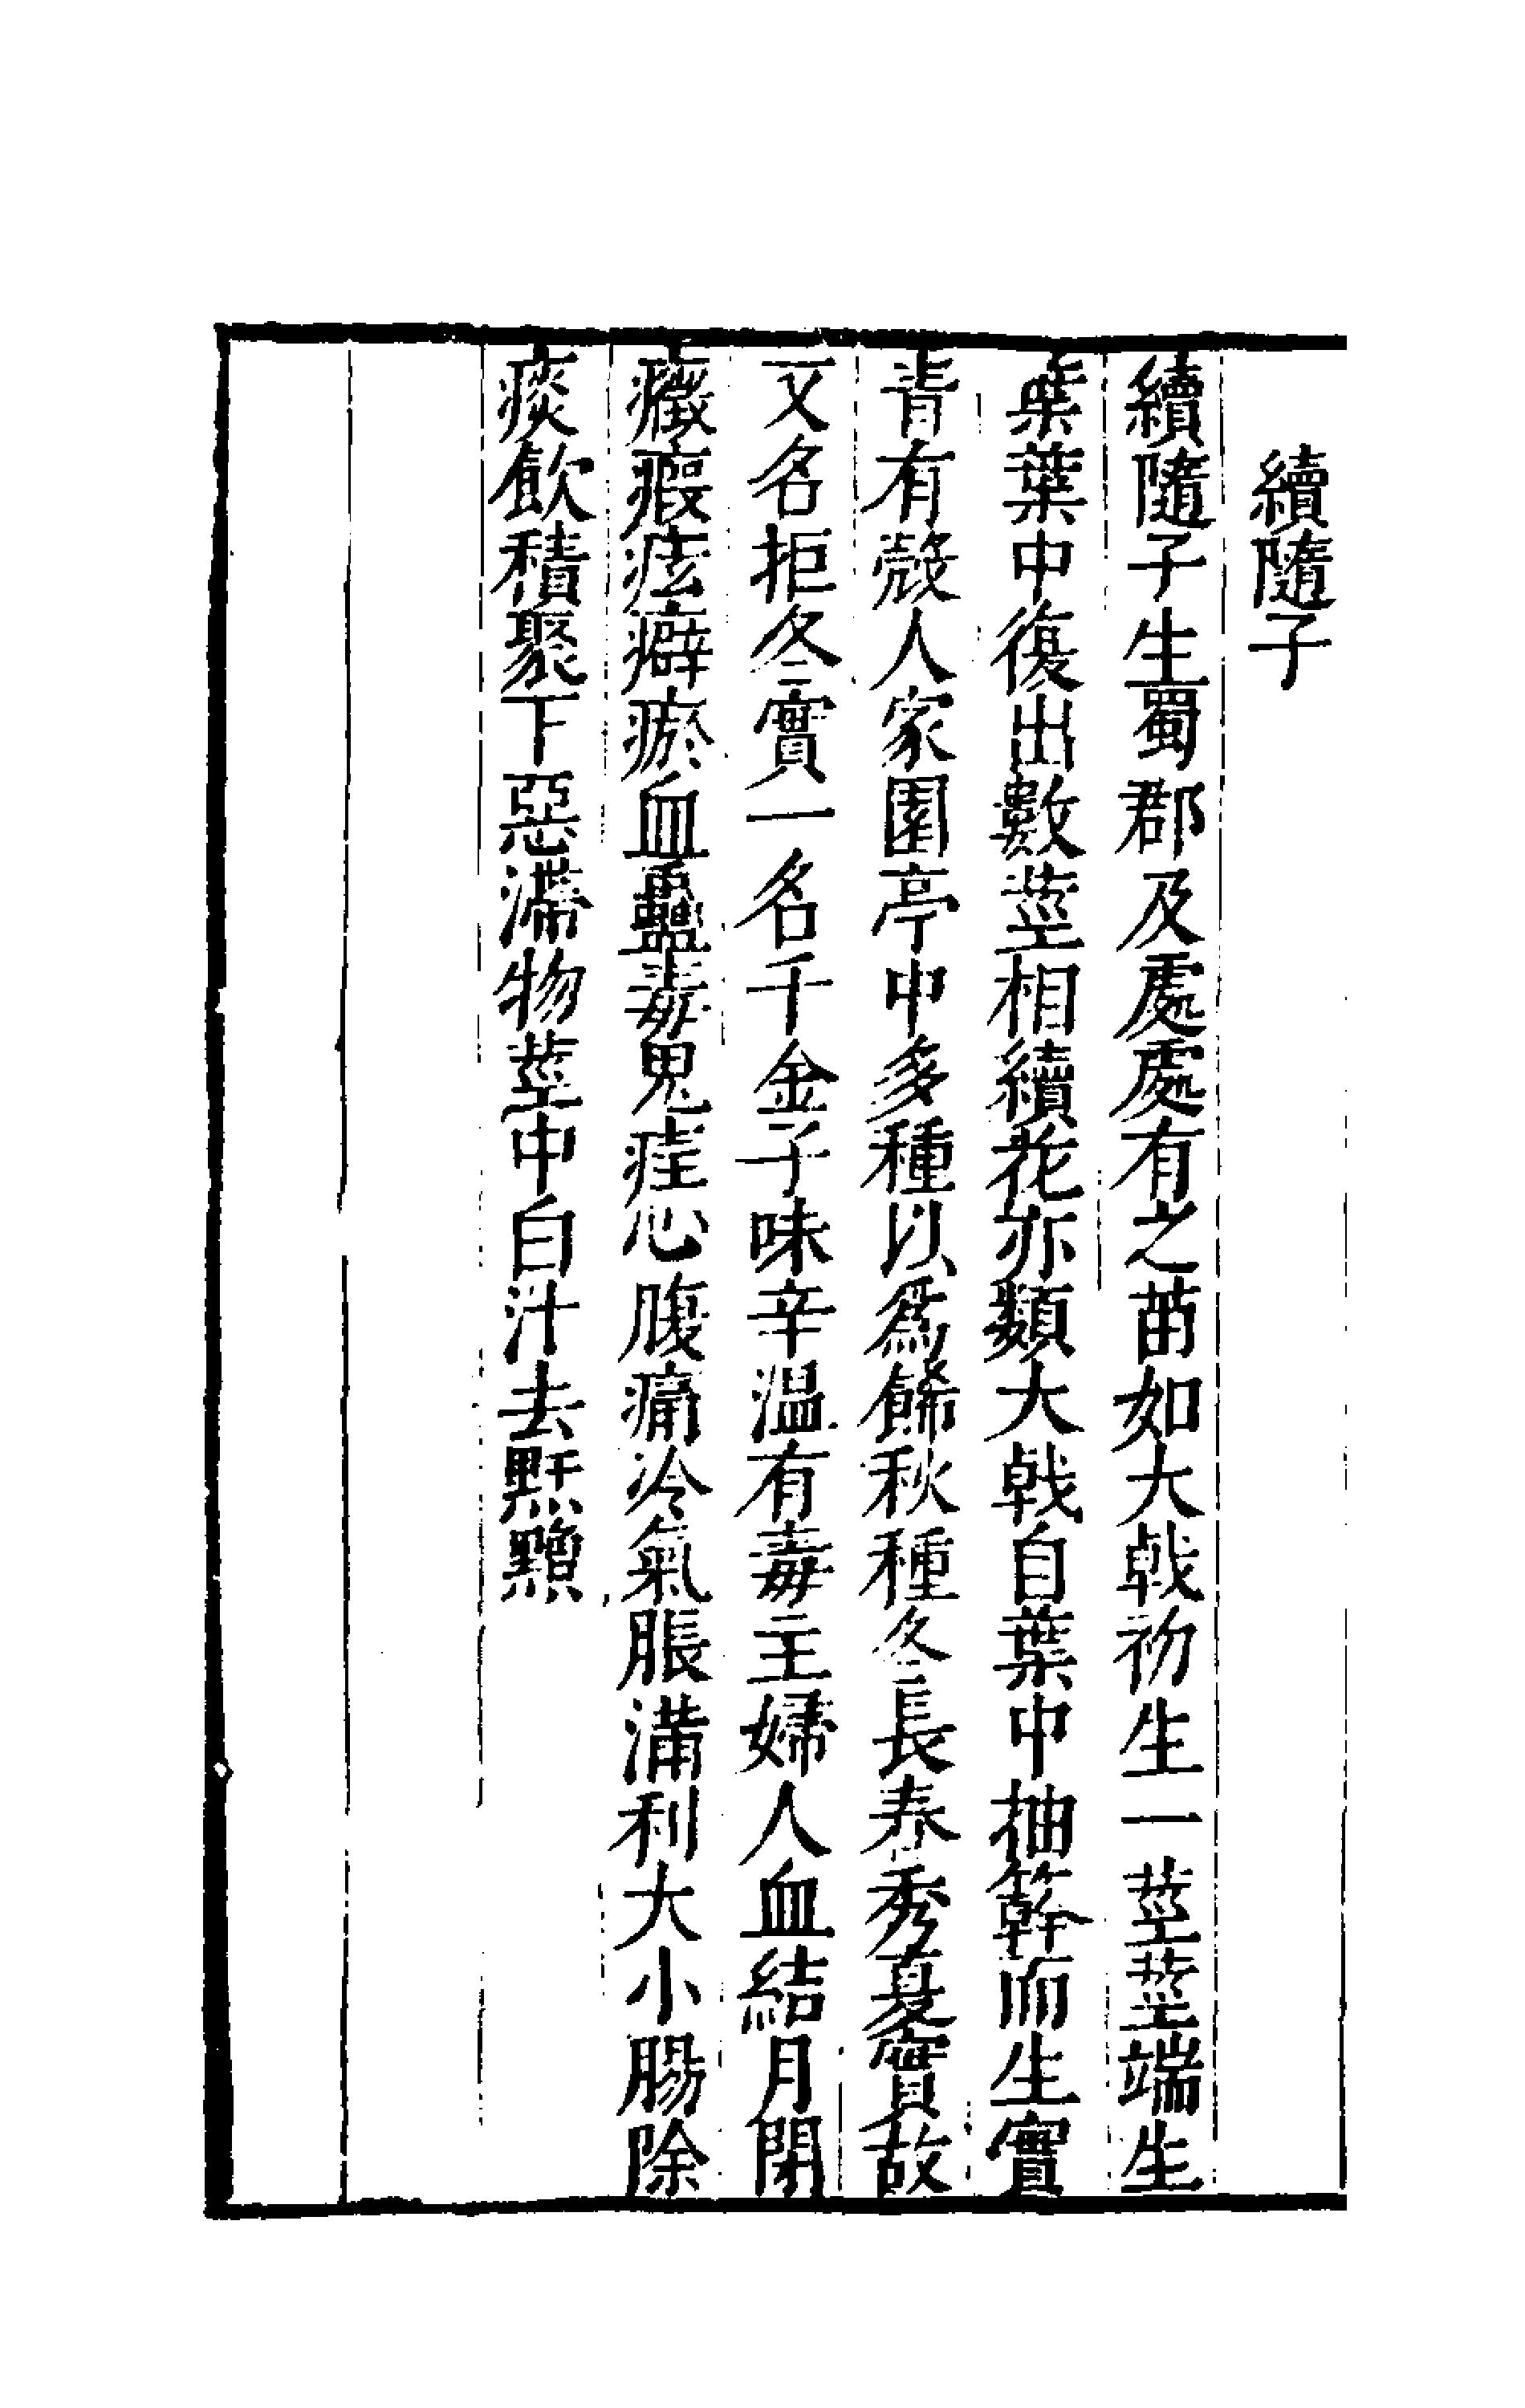 續隨子
續隨子生蜀郡及處處有之苗如大戟初生一莖莖端生
葉葉中復出數莖相續花亦類大戟自葉中抽簳而生實
青有殼人家園亭中多種以爲餙秋種冬長春秀夏實故
又名拒冬實一名千金子味辛温有毒主婦人血結月閉
癥瘕痃癖瘀血蠱毒鬼疰心腹痛冷氣脹滿利大小腸除
痰飲積聚下惡滯物莖中白汁去䵟黵